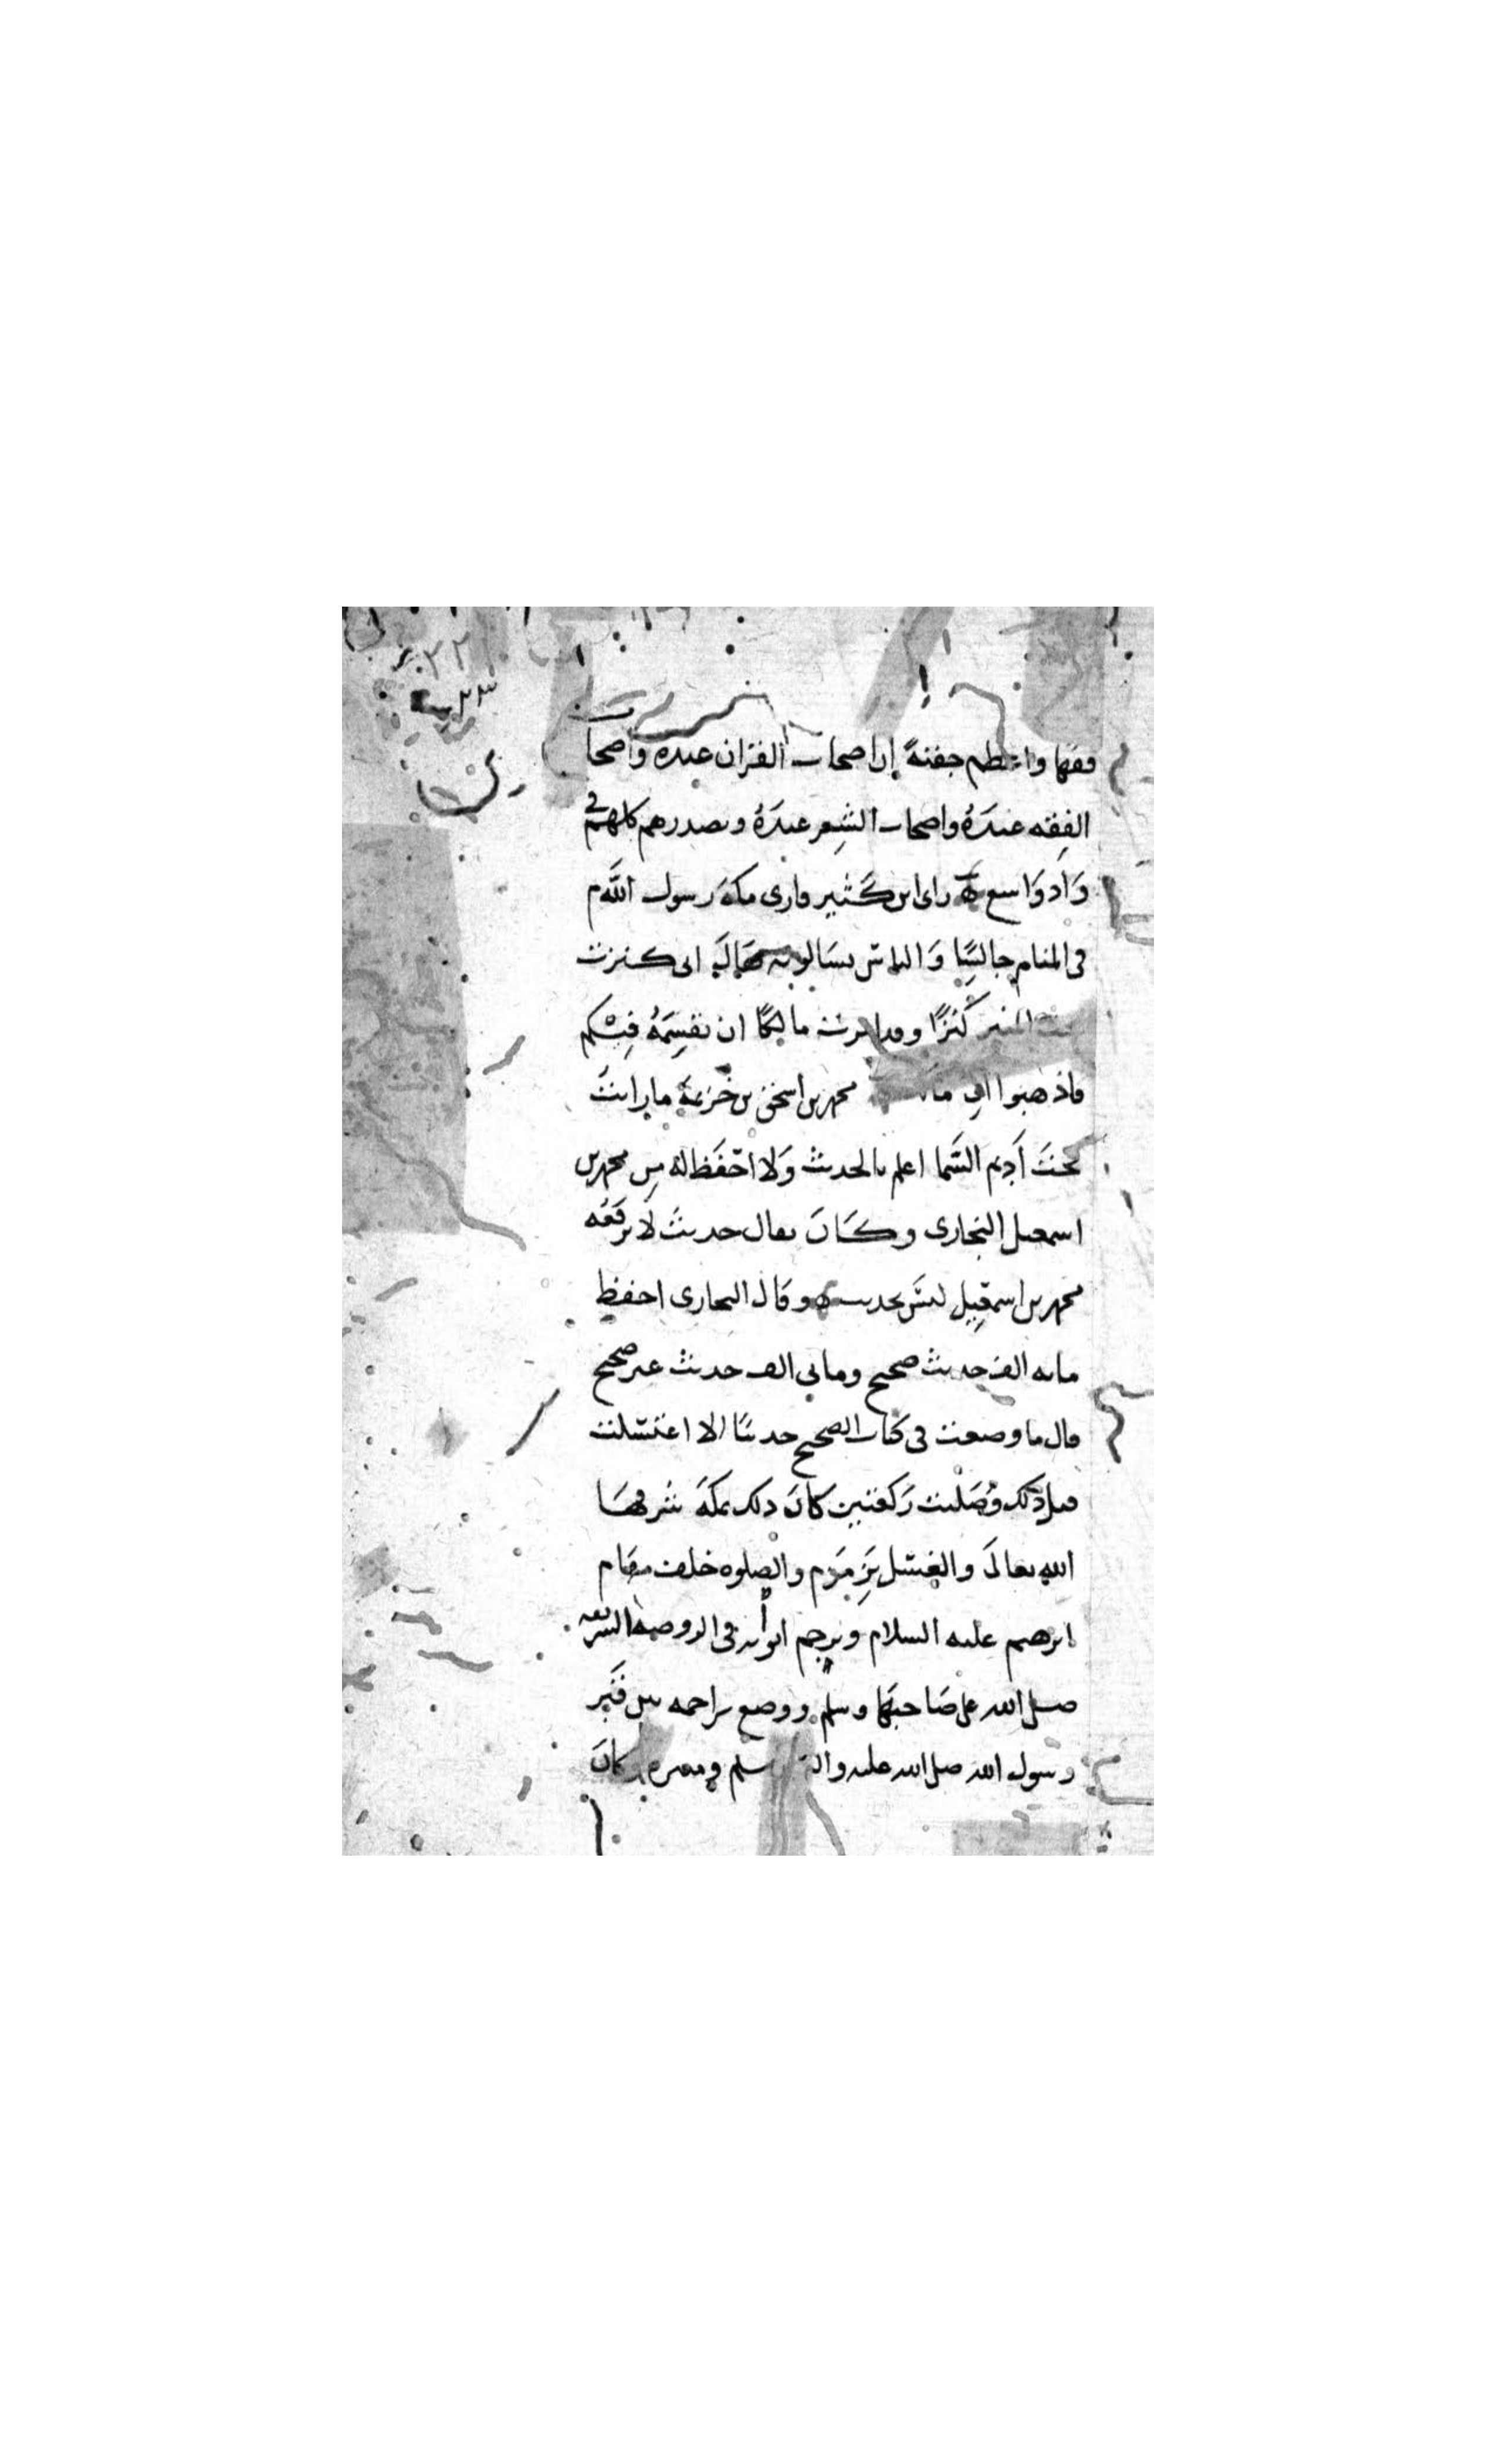 فقها واعظم جفنةً إن اصحاب القران عنده واصحا
الفِقه عندَهُ واصحاب الشِعر عندَهُ ويصدرهم كلهم في
وَادٍ وَاسع راى ابن كَثير قارى مكة رسول الله م
في المنام جالسًِا وَالناس يسَالونه فقَالَ انى كنزت
تحت المنبر كَنزًا وقد امرت مالِكًا ان يقسِمَهُ فِيكم
فاذهبوا الى مالك محمد بن اسحق بن خزيمة ما رايتُ
تحتَ أَدِيم السَّما اعلم بالحديث وَلا احفَظ له مِن محمد بن
اسمعيل البخارى وكَانَ يقال حديثَ لا يرفَعُه
محمد بن اسمعِيل ليسَ بحديث وقَال البخارى احفظ
مايه الف حديث صحيح ومايى الف حديث غير صحيح
قال ما وضعت في كتاب الصحيح حديثًا الا اغتسلت
قبل ذلك وصَليت رَكعتين كانَ ذلك بمكةَ شرفهَا
الله تعالَى والغسل بزَمزَم والصلوه خلف مقَام
ابرهيم عليه السلام وترجم ابوابه في الروضه الشريفه
صلى الله على صَاحبهَا وسلم ووضع تراجمه بين قَبر
رسول الله صلى الله عليه واله وسلم ومنبره وكانَ